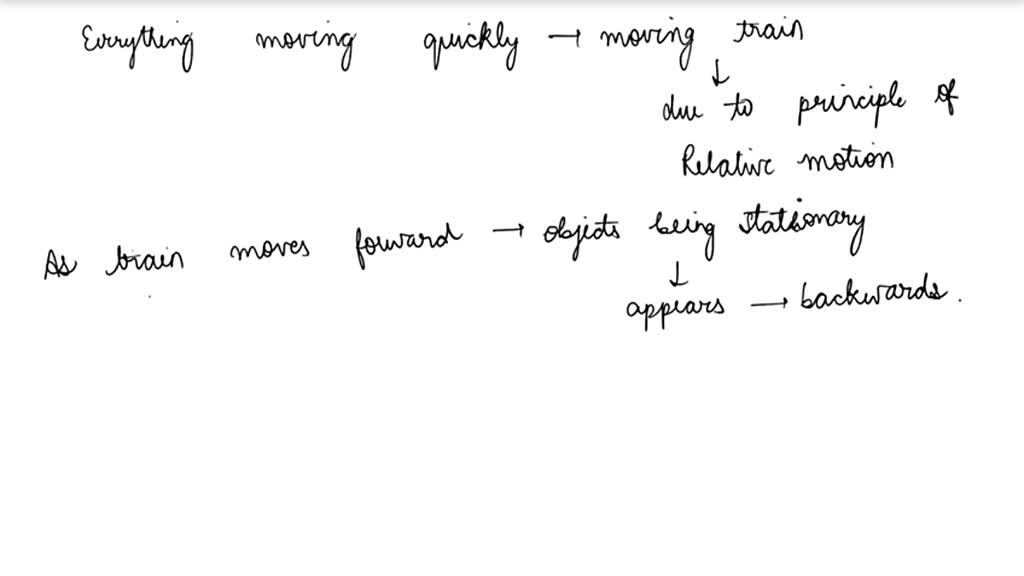 Everything moving quickly → moving train
↓
due to principle of
Relative motion
As train moves forward → objects being stationary
↓
appears → backwards.